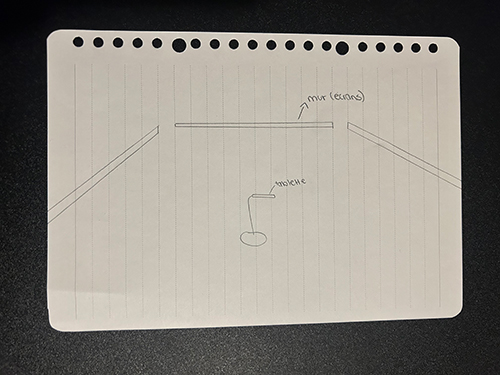 mur (écrans)
tablette